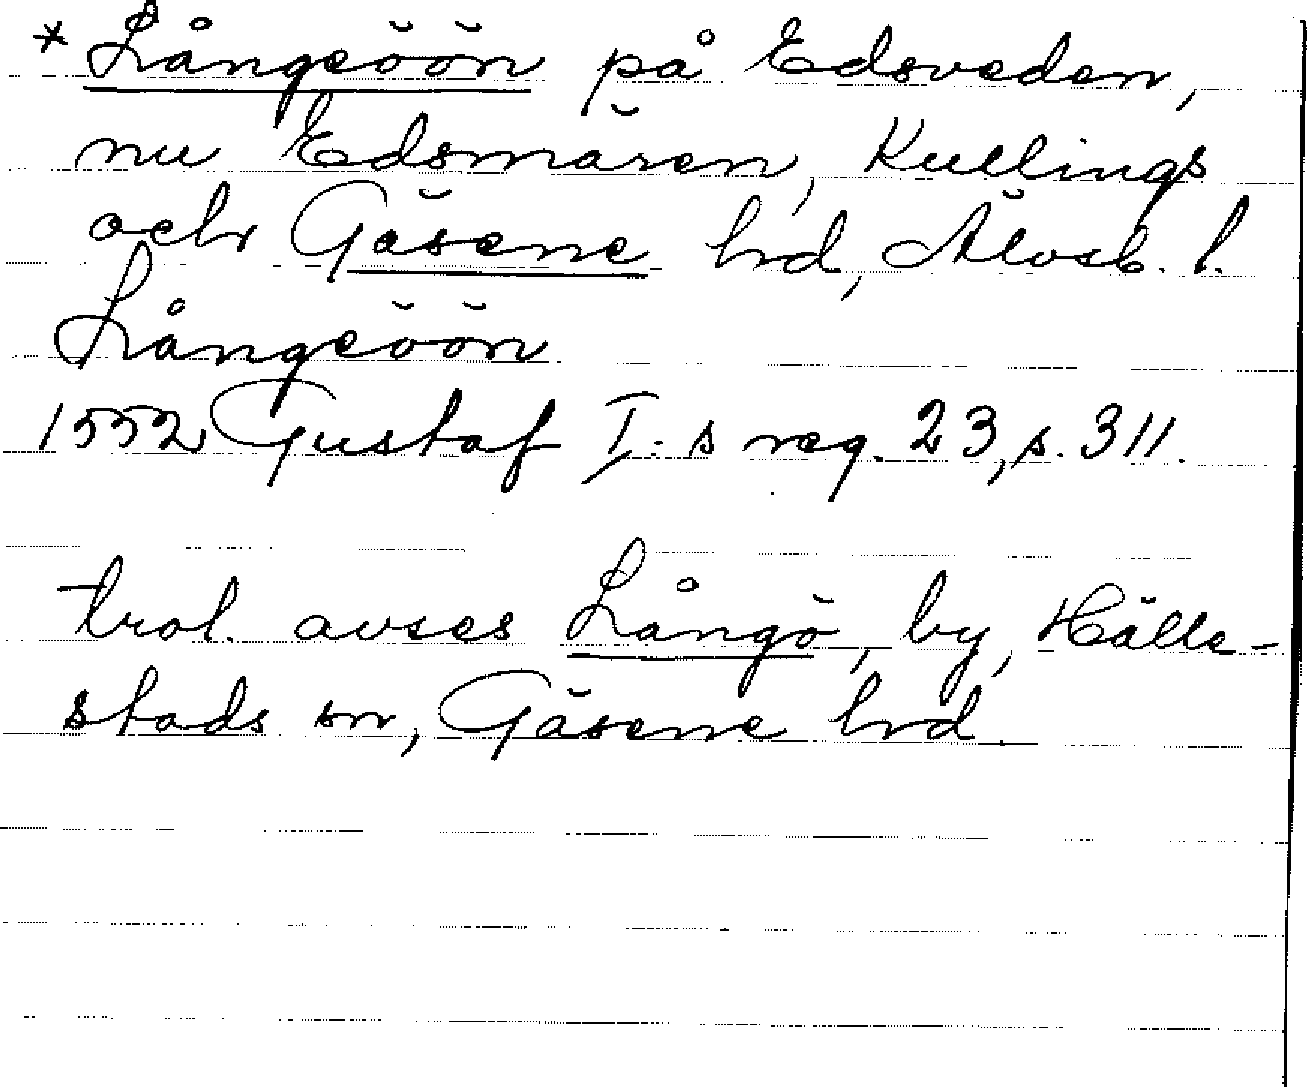 * Långeöön på Edsveden,
nu Edsmären, Kullings
och Gäsene hd, Älvsb. l.
Långeöön
1552 Gustaf I:s reg. 23, s. 311.
trol. avses Långö, by, Hälle-
stads sn, Gäsene hd.